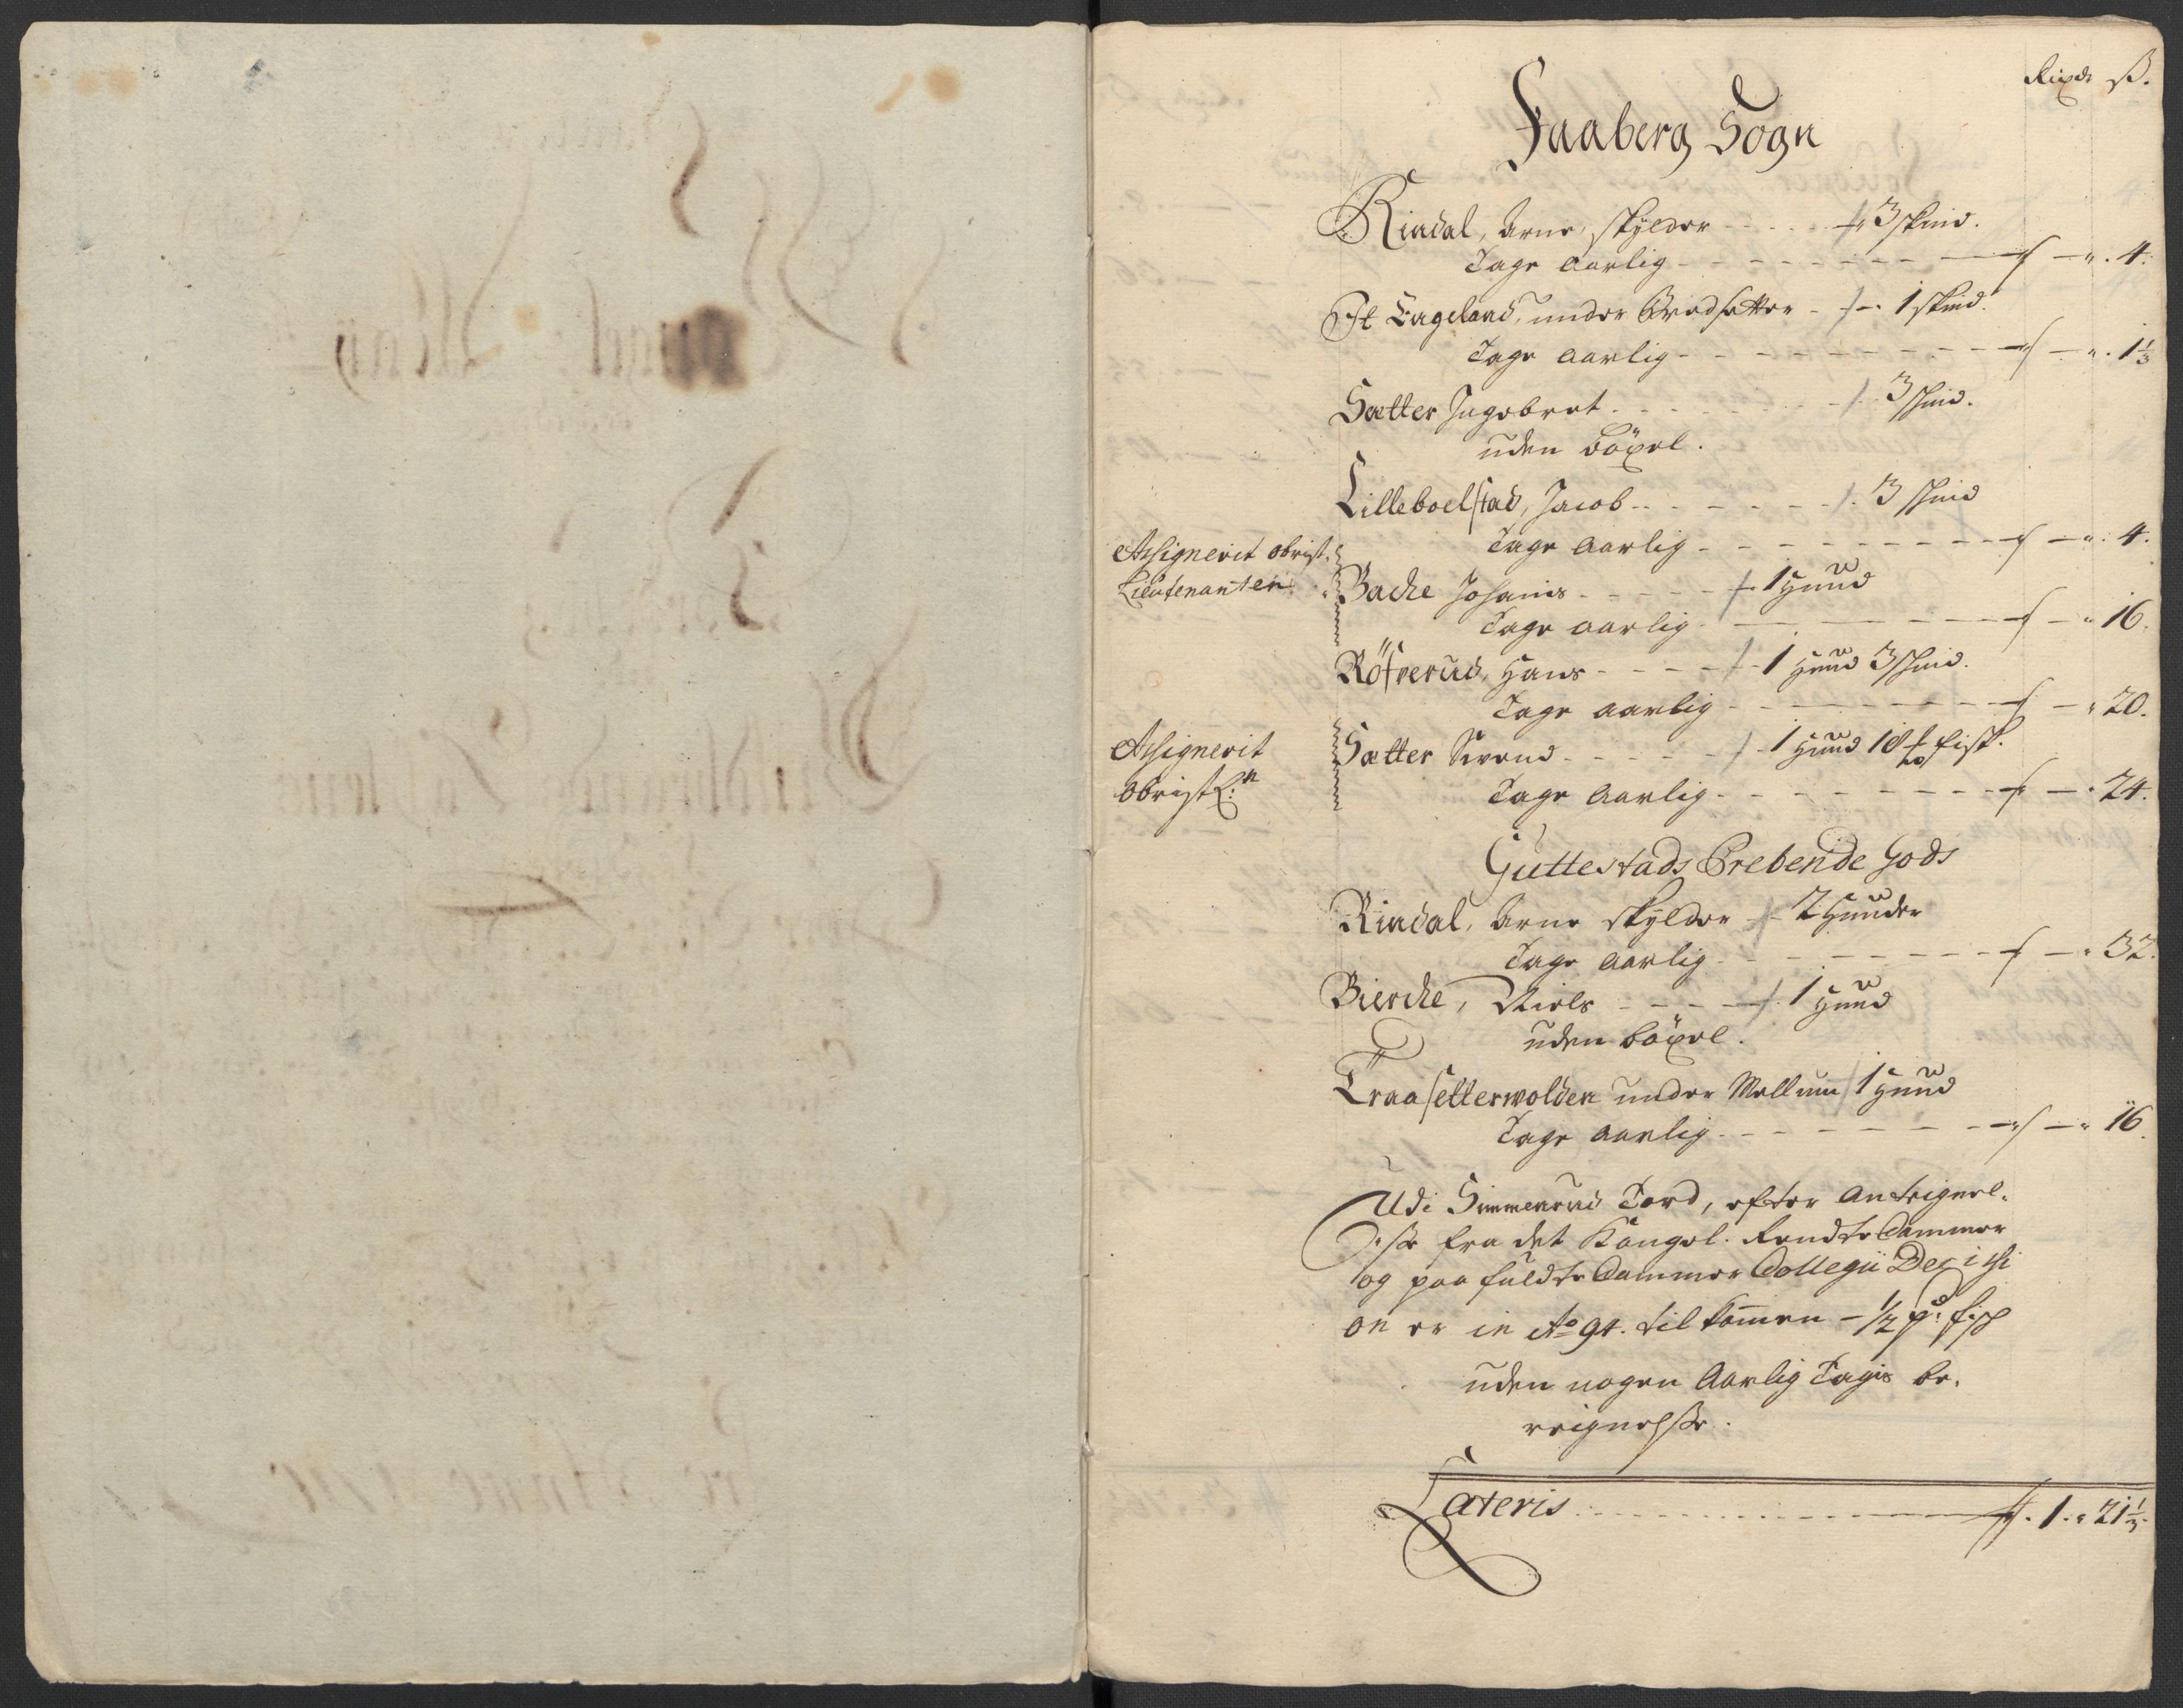 Rixdr ß.
Faaberg Sogn
Rindal, Arne, skylder - - - 3 skind.
Tage aarlig - - - 4.
Et Engeland, under Brodsetter - 1 skind.
Tage aarlig - - - 1⅓
Sætter Ingebret - - - 3 skind.
uden böxel.
Lilleboelstad, Jacob - - - 3 skind
Tage aarlig - - - 4.
Assignerit obrist
Lieutenanten
Bache Johanis - - - 1 Hund
Tage aarlig - - - 16.
Röfverud, Hans - - - 1 Hund 3 skind.
Tage aarlig - - - 20.
Assignerit
obristL:n
Sætter Svend - - - 1 Hund 18 fisk.
Tage aarlig - - - 24.
Guttestads Prebende Gods
Rindal, Arne skylder - 2 Hunder
Tage aarlig - - - 32.
Bierche, Niels - - - 1 Hund
uden böxel.
Traasetterwolden under Mellum 1 Hund
Tage aarlig - - - 16.
Udi Simmenrud Tord, efter Anteignel-
se fra det Kongel. Rendte Cammer
og paafuldte Cammer Collegii Decisi
on er in Ao 94. tilkommen - ½ pd: fisk
uden nogen Aarlig Tagis be-
reignelse.
Lateris - - - 1. 21⅓